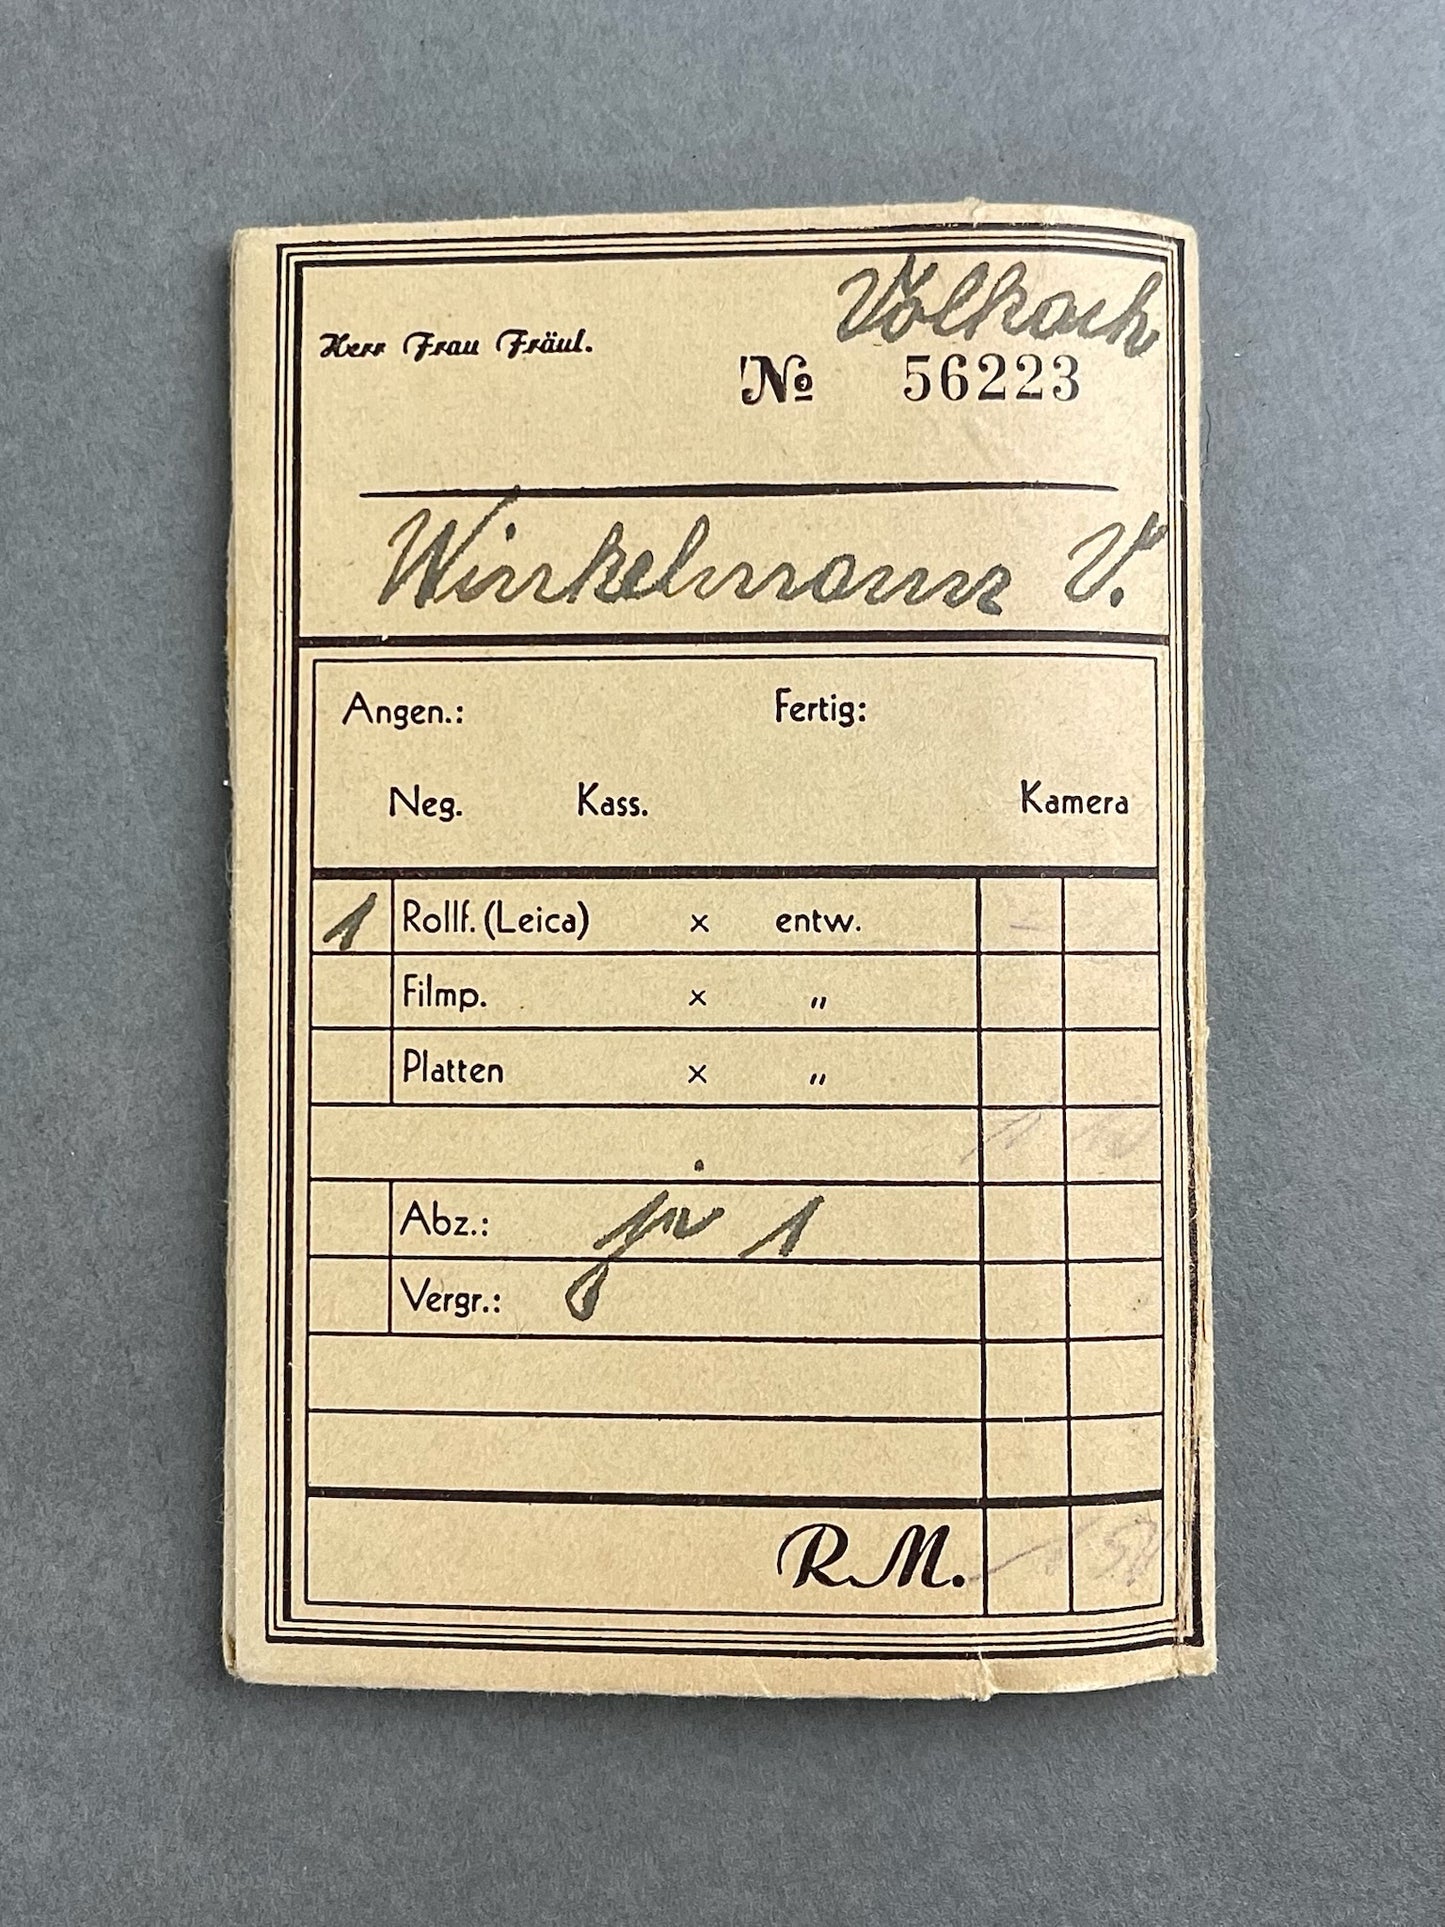 Volkach
Herr Frau Fräul.
No 56223
Winkelmann V.
Angen.: Fertig:
Neg. Kass. Kamera
1 Rollf. (Leica) x entw.
Filmp. x "
Platten x "
Abz.: je 1
Vergr.:
R.M.